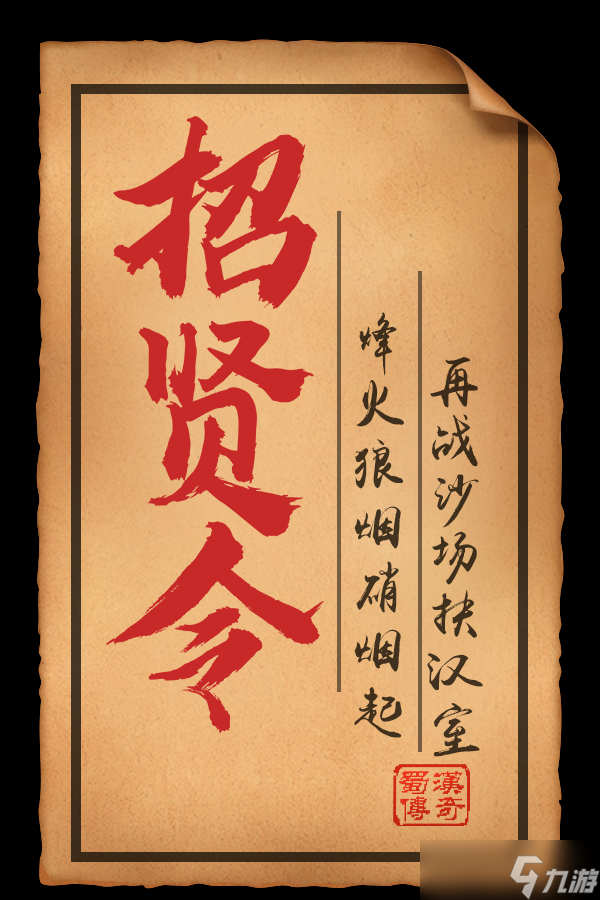 招贤令
烽火狼烟硝烟起
再战沙场扶汉室
蜀漢
傳奇
九游